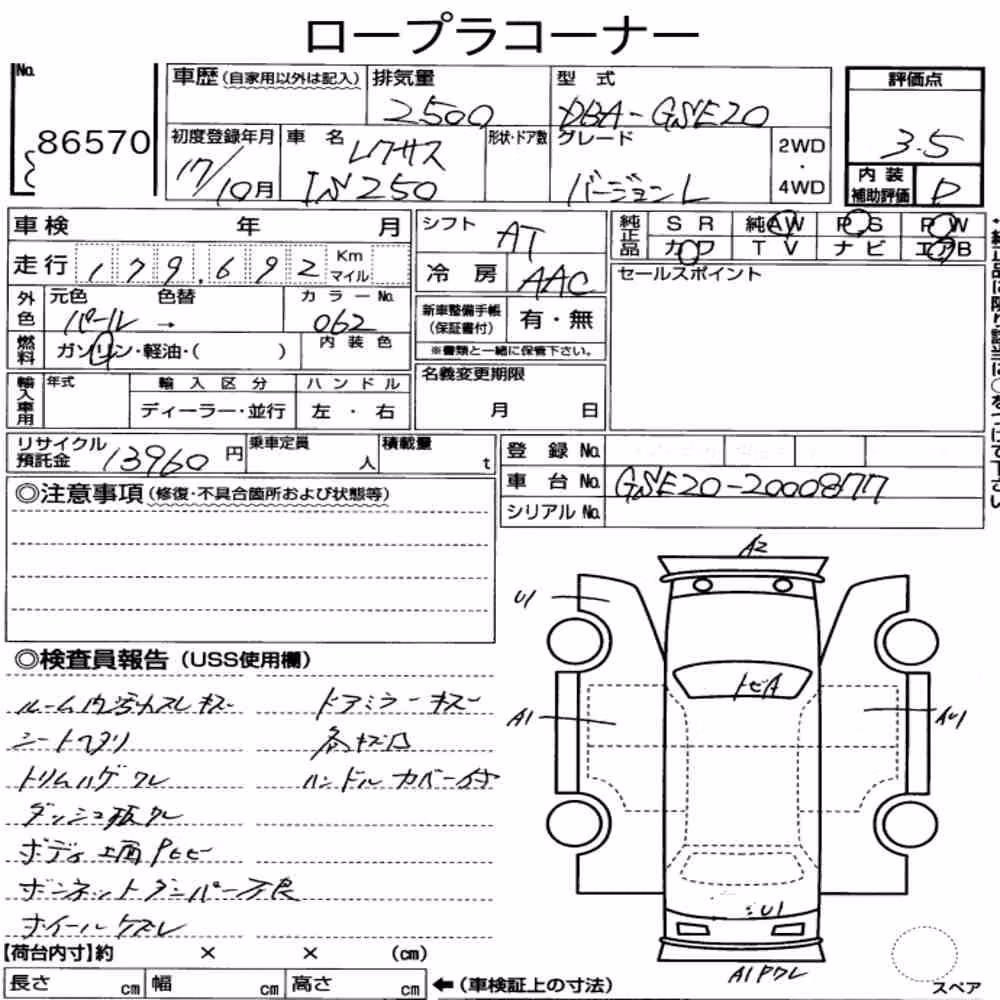 ロープラコーナー
No. 86570
車歴(自家用以外は記入) 排気量 2500 型式 DBA-GSE20 評価点 3.5
初度登録年月 17/10月 車名 レクサス IS250 形状・ドア数 グレード バージョンL 2WD・4WD
内装補助評価 D
車検 年 月 シフト AT 純正品 SR 純AW PS PW
カワ TV ナビ エアB
走行 179,692 Km マイル 冷房 AAC セールスポイント
外色 元色 パール → 色替 カラーNo. 062 新車整備手帳(保証書付) 有・無
※書類と一緒に保管下さい。
燃料 ガソリン・軽油・( ) 内装色
輸入車用 年式 輸入区分 ディーラー・並行 ハンドル 左・右
名義変更期限 月 日
リサイクル預託金 13960円 乗車定員 人 積載量 t
登録No.
車台No. GSE20-2000877
シリアルNo.
◎注意事項(修復・不具合箇所および状態等)
◎検査員報告(USS使用欄)
ルーム内汚れスレキズー ドアミラーキズー
シート
トリムハゲクレ ハンドルカバー付
ダッシュ板クレ
ボディ上面
ボンネットダンパー不良
ホイールケズレ
A2
U1
トビA
A1
AU1
U1
A1Pクレ
スペア
【荷台内寸】約 × × (cm)
長さ cm 幅 cm 高さ cm ←(車検証上の寸法)